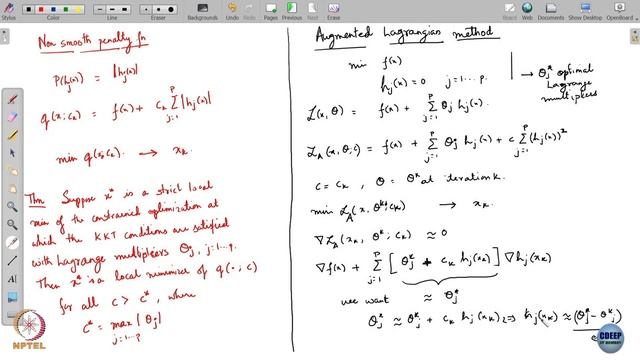 Backgrounds
Undo
Redo
Pages
Previous
33
Next
Erase
Board
Web
Documents
Show Desktop
Non smooth penalty fn
P(hj(x)) = |hj(x)|
q(x; ck) = f(x) + ck ∑_{j=1}^{p} |hj(x)|
min q(x; ck) → xk.
Thm: Suppose x* is a strict local
min of the constrained optimization at
which the KKT conditions are satisfied
with Lagrange multipliers θj, j=1..p.
Then x* is a local minimizer of q(·; c)
for all c > c*, where
c* = max_{j=1..p} |θj|
Augmented Lagrangian method
min f(x)
hj(x) = 0 j=1...p.
→ θj* optimal
Lagrange
multipliers
L(x, θ) = f(x) + ∑_{j=1}^{p} θj hj(x).
L_A(x, θ, c) = f(x) + ∑_{j=1}^{p} θj hj(x) + c ∑_{j=1}^{p} (hj(x))²
c = ck, θ = θ^k at iteration k.
min L_A(x, θ^k; ck) → xk.
∇L_A(xk, θ^k; ck) ≈ 0
∇f(x) + ∑_{j=1}^{p} [θj^k + ck hj(xk)] ∇hj(xk)
we want ≈ θj*
θj* ≈ θj^k + ck hj(xk) ⇒ hj(xk) ≈ (θj* - θj^k)
NPTEL
CDEEP
IIT BOMBAY